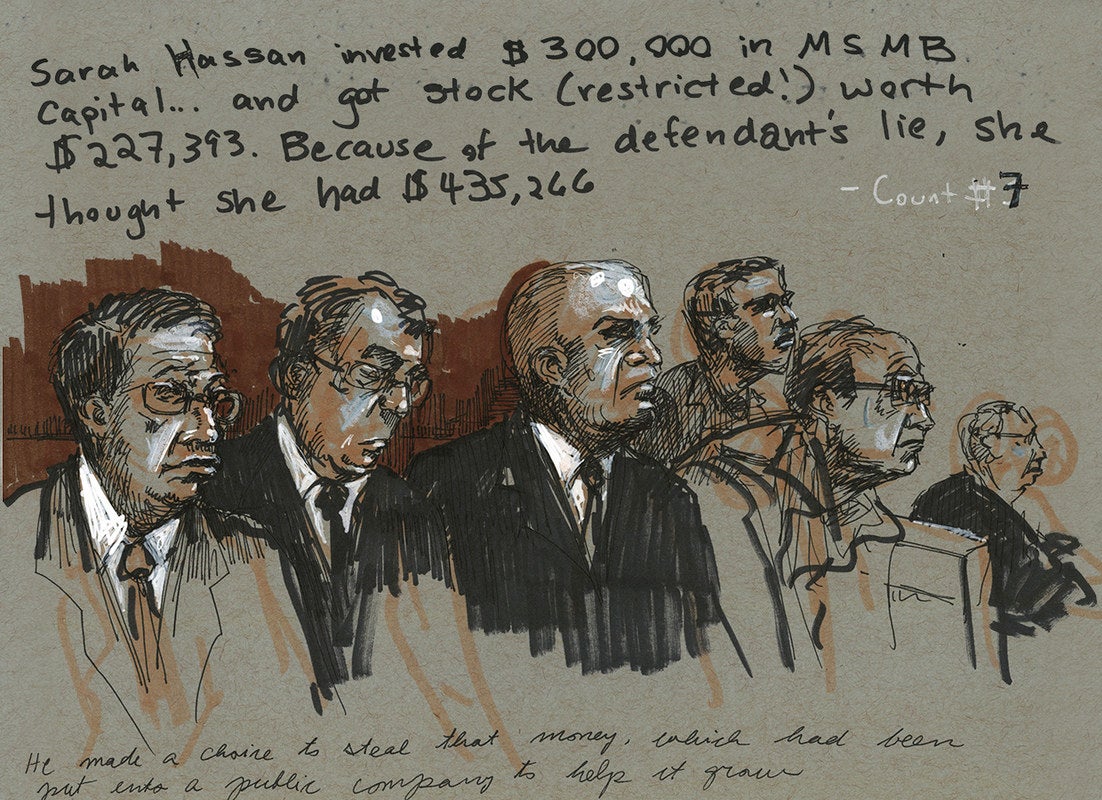 Sarah Hassan invested $300,000 in MSMB
Capital... and got stock (restricted!) worth
$227,393. Because of the defendant's lie, she
thought she had $435,266
- Count #7
He made a choice to steal that money, which had been
put into a public company to help it grow